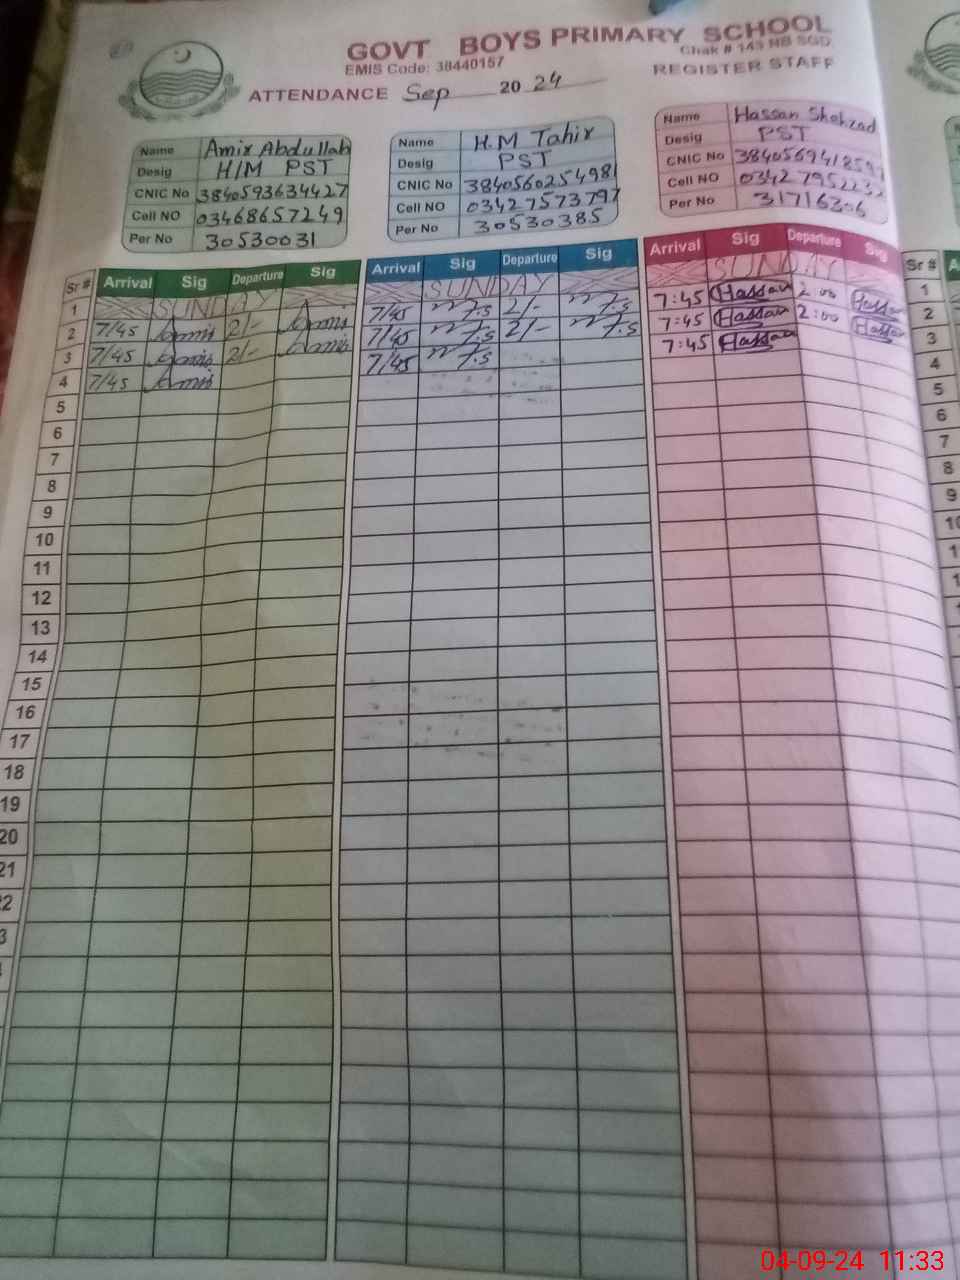 GOVT BOYS PRIMARY SCHOOL
EMIS Code: 38440157 Chak # 143 NB SGD.
ATTENDANCE Sep 2024 REGISTER STAFF
Name Amir Abdullah
Desig H/M PST
CNIC No 3840593634427
Cell NO 03468657249
Per No 30530031
Name H.M Tahir
Desig PST
CNIC No 3840560254981
Cell NO 03427573797
Per No 30530385
Name Hassan Shehzad
Desig PST
CNIC No
Cell NO
Per No 31716306
Sr # Arrival Sig Departure Sig Arrival Sig Departure Sig Arrival Sig Departure Sig Sr #
1 SUNDAY SUNDAY SUNDAY 1
2 7/45 Amir 2/- Amir 7/45 2/- 7:45 Hassan 2:00 Hassan 2
3 7/45 Amir 2/- Amir 7/45 2/- 7:45 Hassan 2:00 Hassan 3
4 7/45 Amir 7/45 7:45 Hassan 4
5 5
6 6
7 7
8 8
9 9
10 10
11
12
13
14
15
16
17
18
19
20
21
04-09-24 11:33